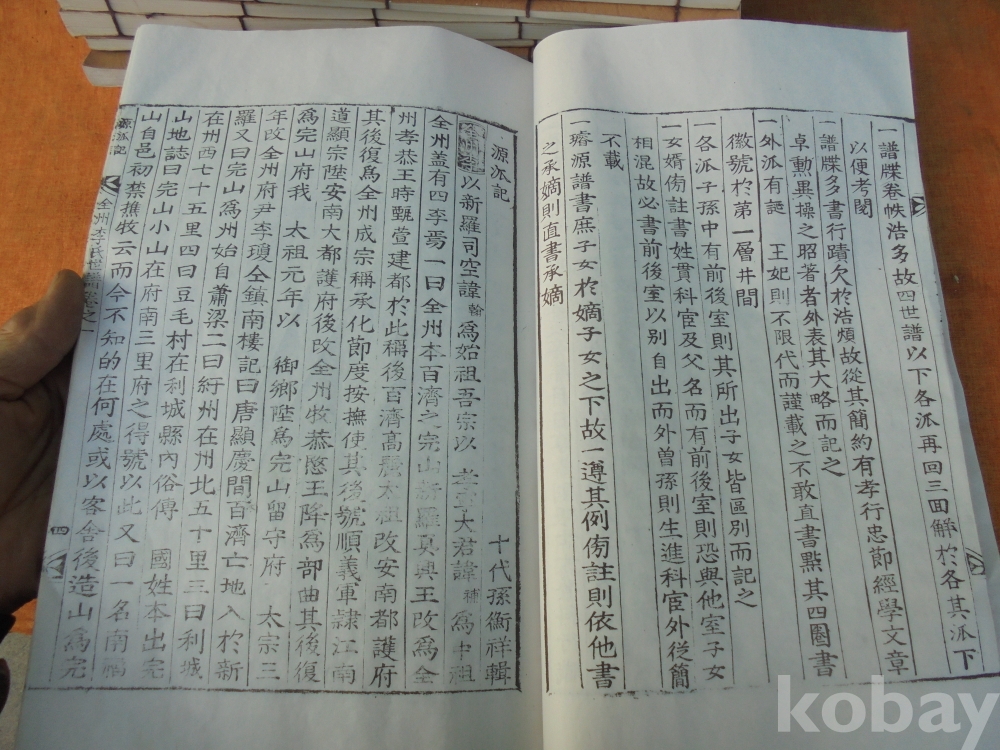 一譜牒卷帙浩多故四世譜以下各派再回三回觧於各其派下
以便考閱
一譜牒多書行蹟欠於浩煩故從其簡約有孝行忠節經學文章
卓勲異操之昭著者外表其大略而記之不敢直書點其四圈書
一外派有 王妃則不限代而謹載之
徽號於第一層井間
一各派子孫中有前後室則其所出子女皆區別而記之
一女婿傍註書姓貫科宦及父名而有前後室則恐與他室子女
相混故必書前後室以別自出而外曽孫則生進科宦外從簡
不載
一璿源譜書庶子女於嫡子女之下故一遵其例傍註則依他書
之承嫡則直書承嫡
源派記 十代孫衡祥輯
以新羅司空諱翰為始祖吾宗以 大君諱 為中祖
全州盖有四李焉一曰全州本百濟之完山新羅真興王改為全
州孝恭王時甄萱建都於此稱後百濟高麗太祖改安南都護府
其後復為全州成宗稱承化節度按撫使其後號順義軍隸江南
道顯宗陞安南大都護府後改全州牧恭愍王降為部曲其後復
為完山府我 太祖元年以 御鄉陞為完山留守府 太宗三
年改全州府尹李瓊仝鎮南樓記曰唐顯慶間百濟亡地入於新
羅又曰完山為州始自蕭梁二曰紆州在州北五十里三曰利城
在州西七十五里四曰豆毛村在利城縣內俗傳 國姓本出完
山地誌曰完山小山在府南三里府之得號以此又曰一名南福
山自邑初禁樵牧云而今不知的在何處或以客舍後造山為完
源派記
全州李氏世譜卷之一
四
kobay